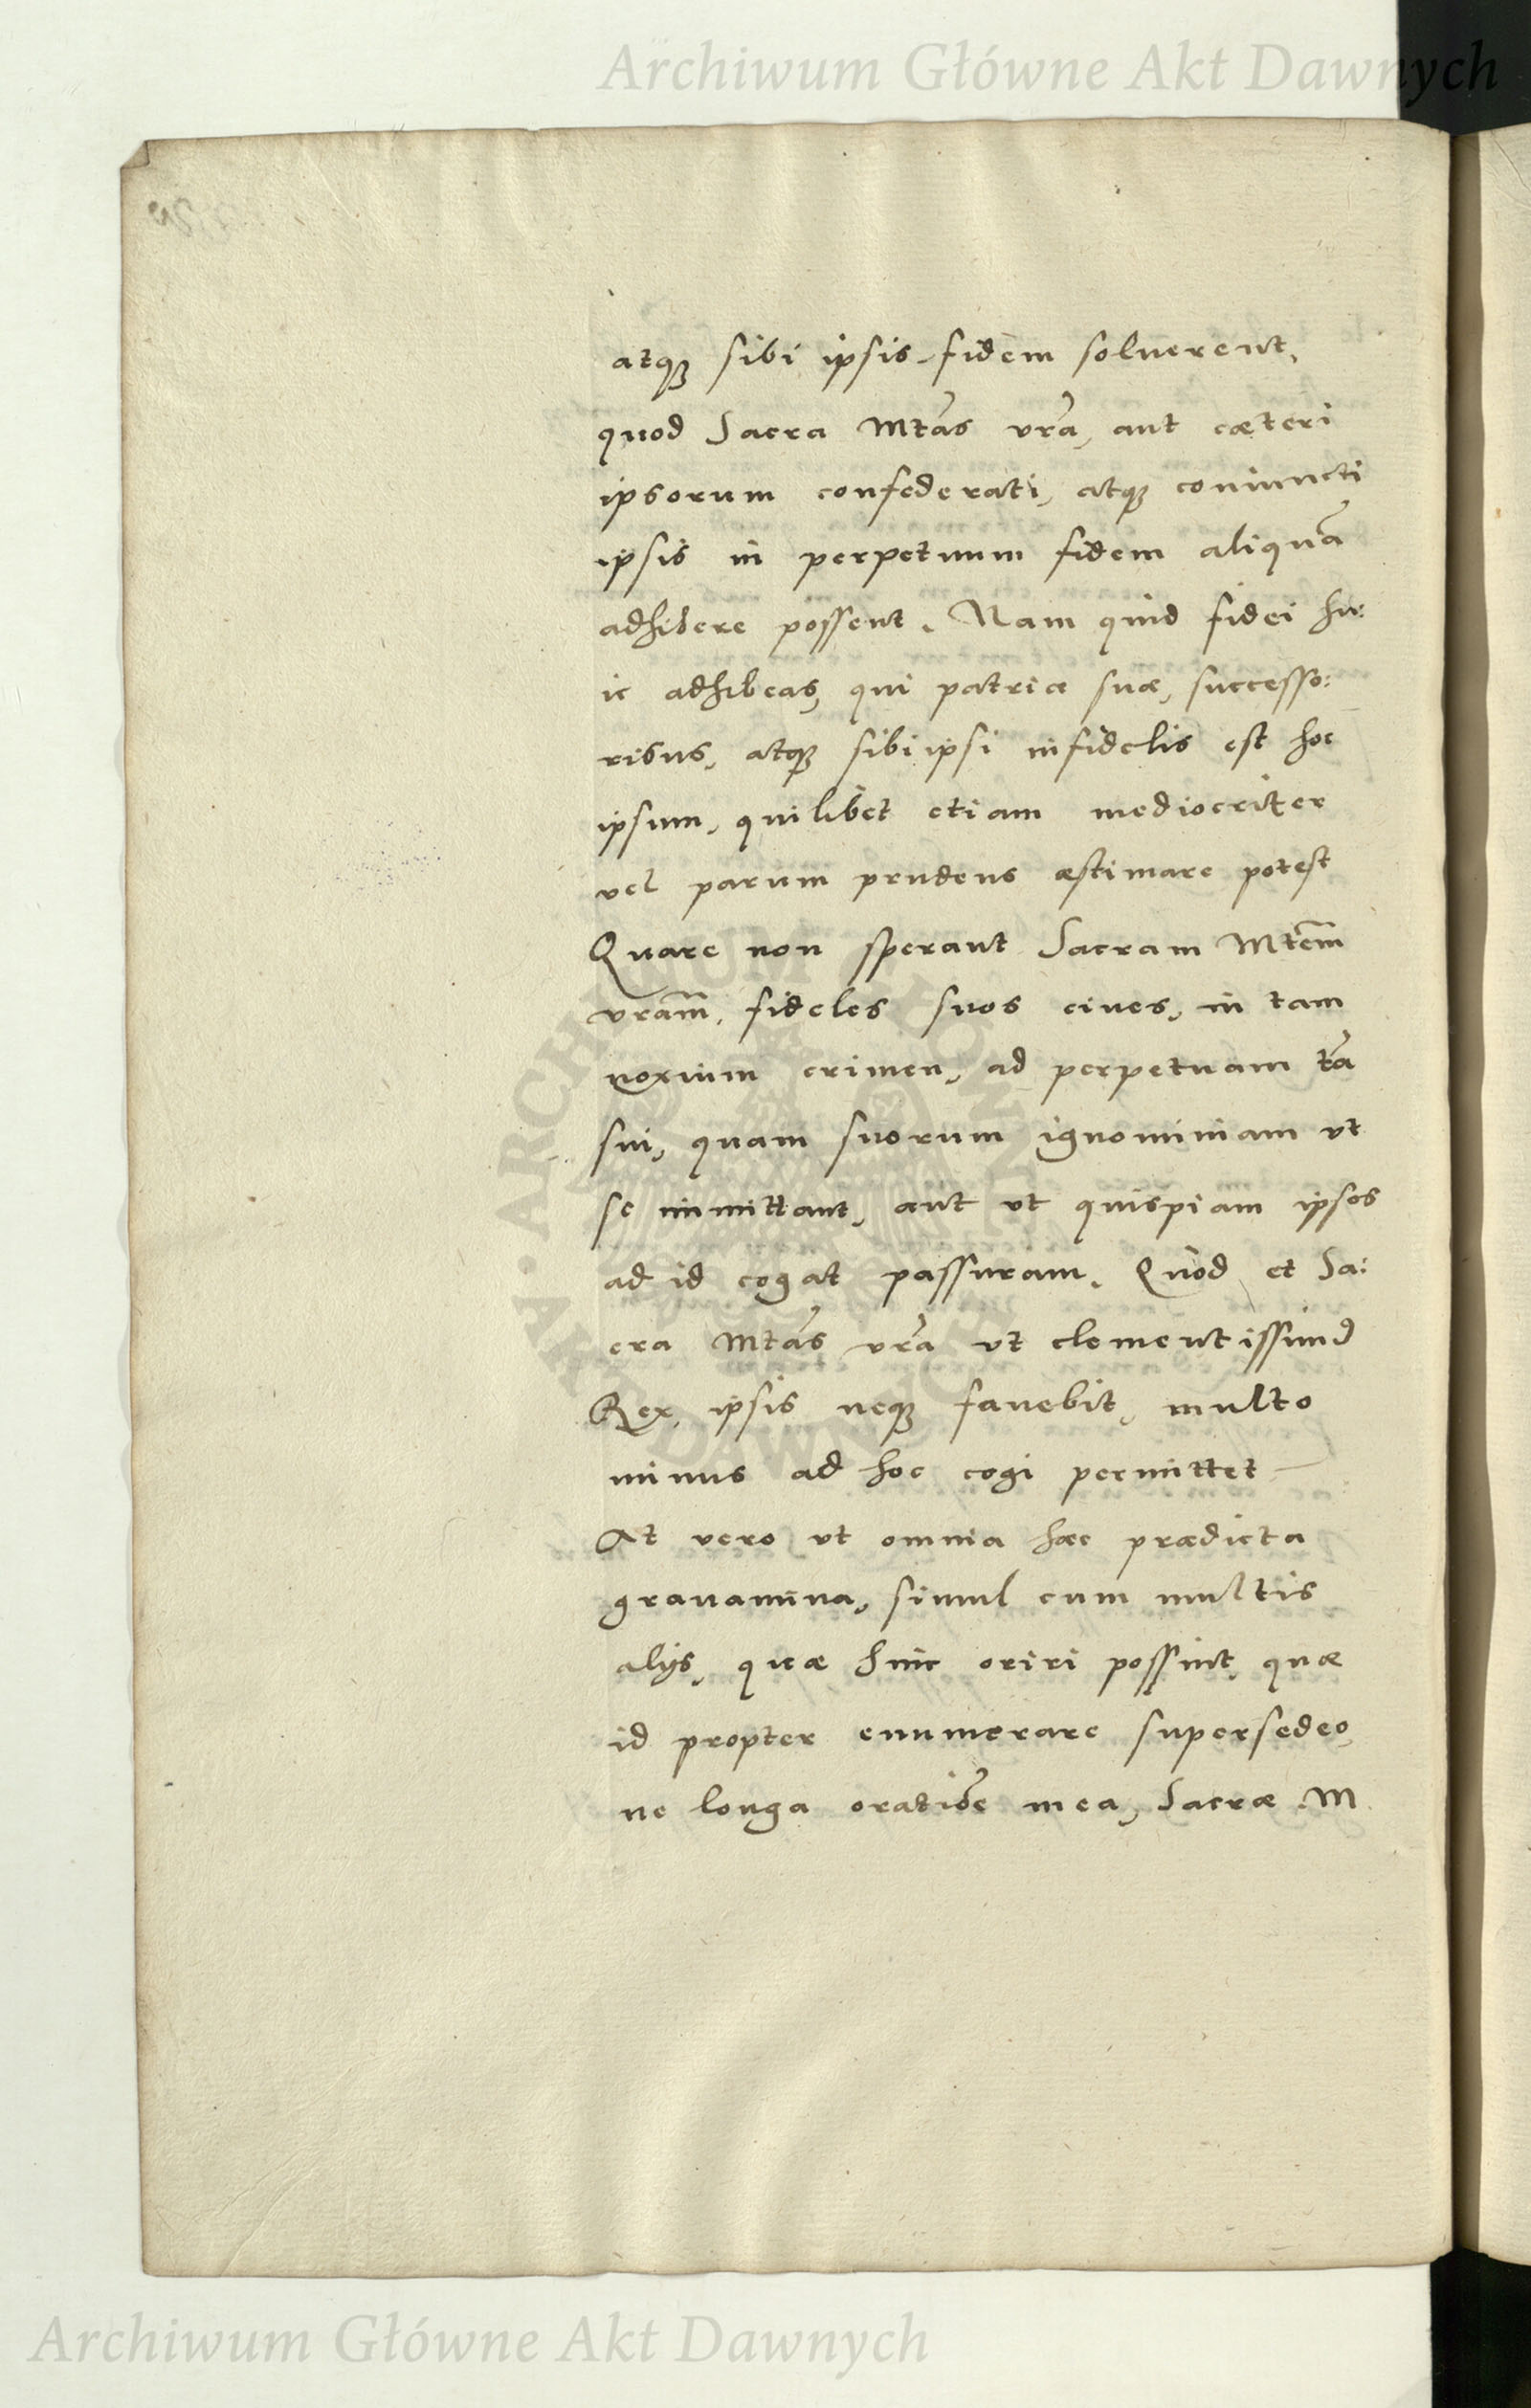 Archiwum Główne Akt Dawnych
atqꝫ sibi ipsis fidem soluerent,
quod Sacra Mtas vra, aut cæteri
ipsorum confederati, atqꝫ coniuncti
ipsis in perpetuum fidem aliquā
adhibere possent. Nam quid fidei hu:
ic adhibeas, qui patriæ suæ, successo:
ribus, atqꝫ sibi ipsi infidelis est hoc
ipsum, quilibet etiam mediocriter
vel parum prudens æstimare potest
Quare non sperant Sacram Mtem
vram, fideles suos ciues, in tam
noxium crimen, ad perpetuam tā
sui, quam suorum ignominiam vt
se immittant, aut vt quispiam ipsos
ad id cogat passuram. Quod et Sa:
cra Mtas vra vt clementissimꝰ
Rex, ipsis neqꝫ fauebit, multo
minus ad hoc cogi permittet
At vero vt omnia hæc prædicta
grauamina, simul cum multis
alijs, quæ hinc oriri possint, quæ
id propter enumerare supersedeo,
ne longa oratiōe mea, Sacræ M
ARCHIWUM GŁÓWNE AKT DAWNYCH
Archiwum Główne Akt Dawnych